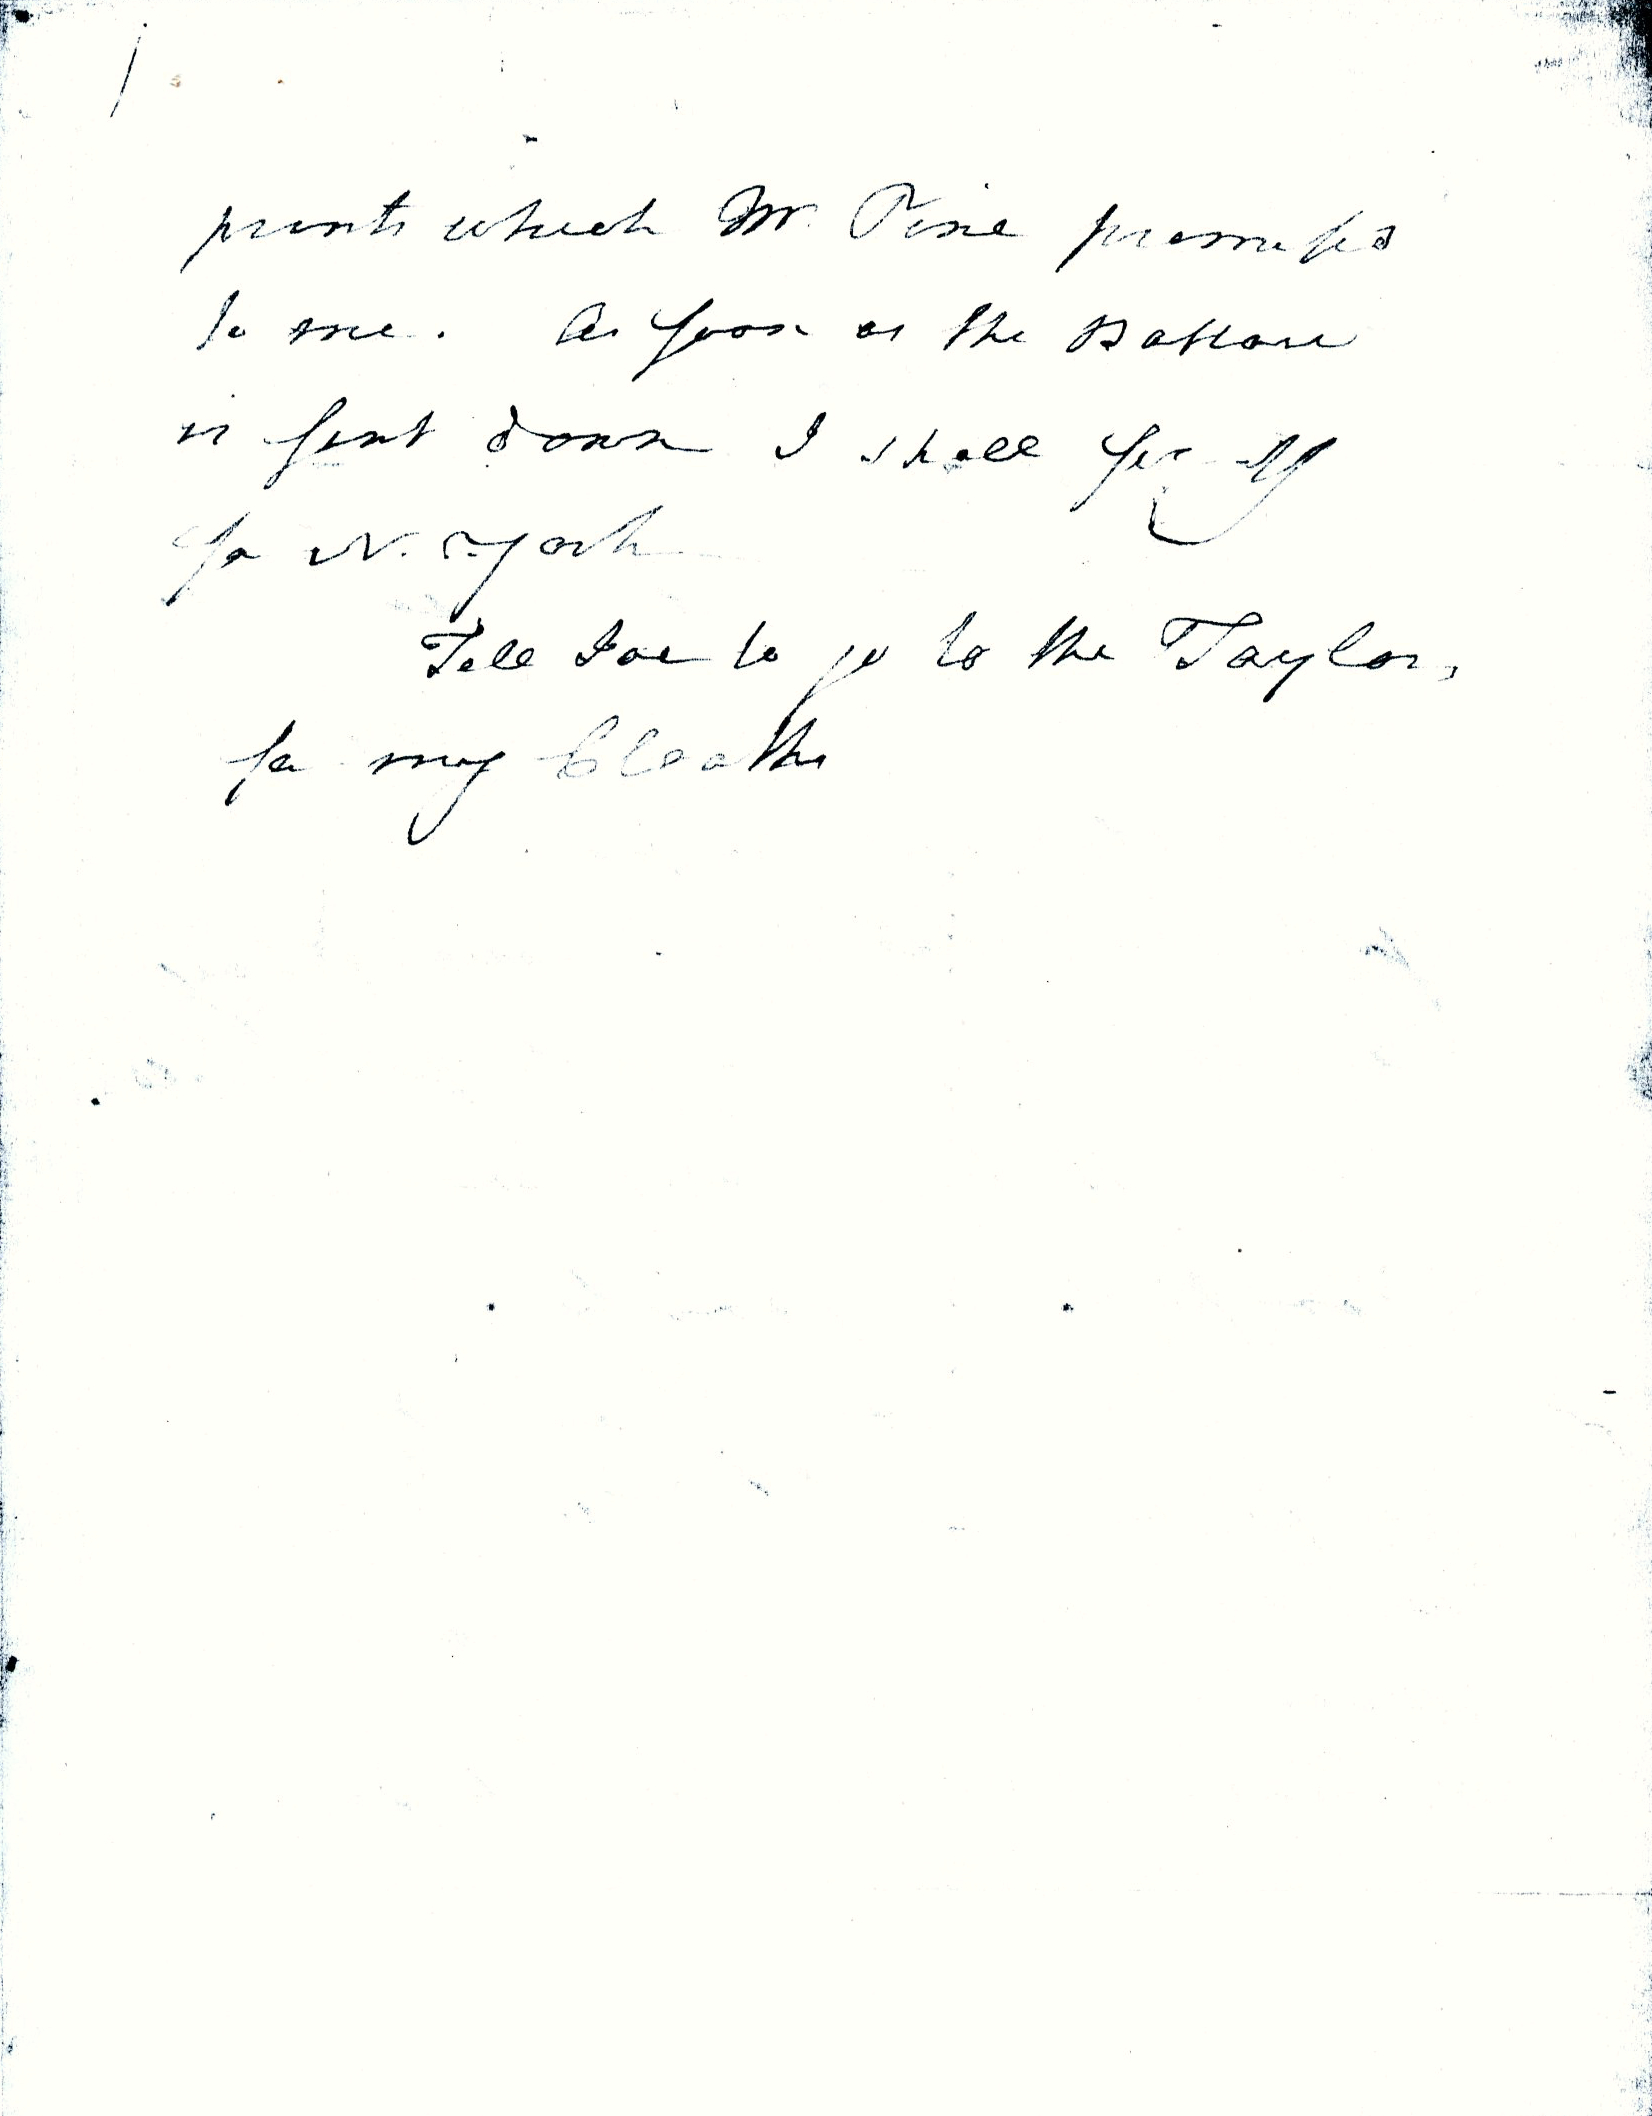 prints which Mr. Pine promised
to me. As soon as the Batteau
is sent down I shall set off
for N. York
Tell Joe to go to the Taylors,
for my Cloaths